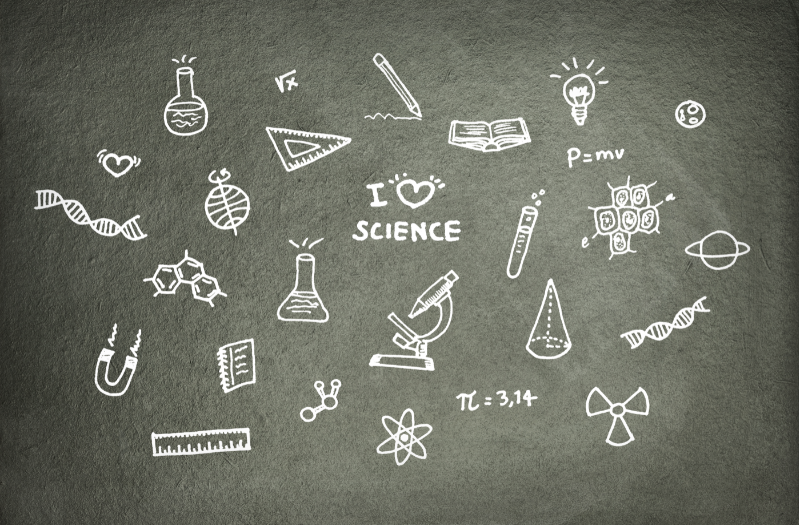 √x
P=mv
I ♡
SCIENCE
a
e
π=3,14